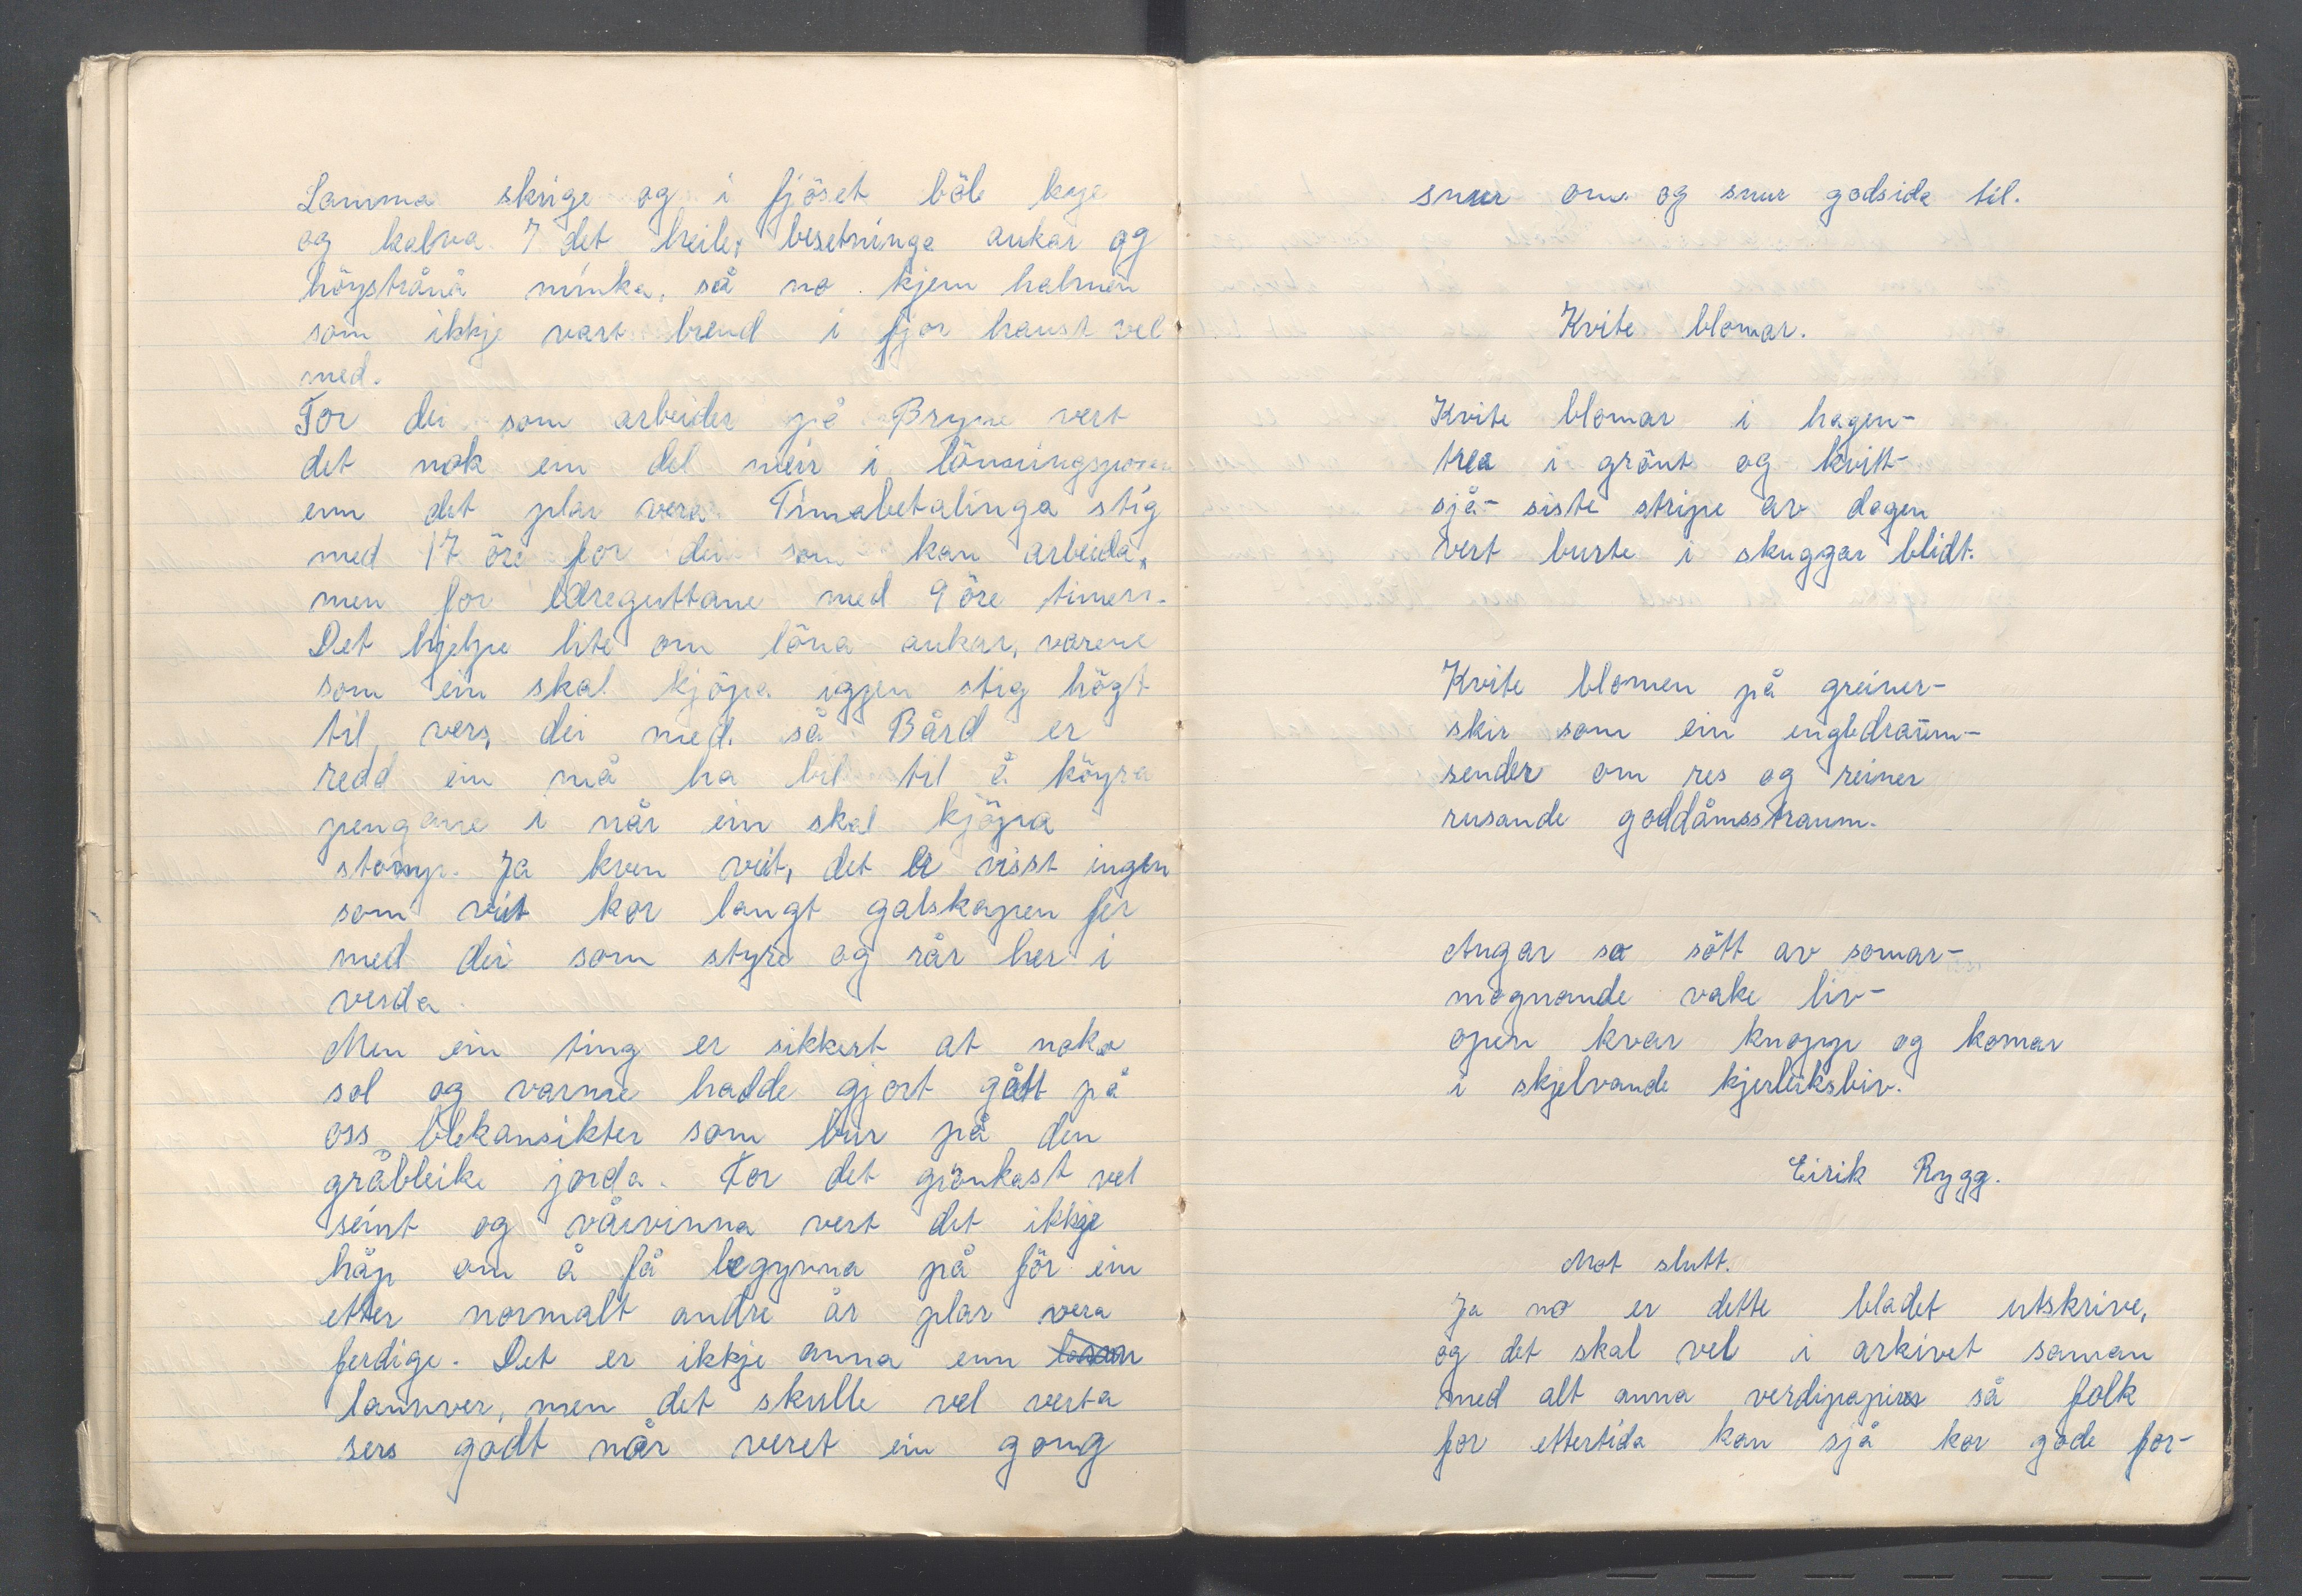 Lamma skrige og i fjöset böle kyr
og kalva. I det heile, besetninga aukar og
höystråna minka, så no kjem halmen
som ikkje vart brend i fjor haust vel
med.
For dei som arbeider på Bryne vert
det nok ein del meir i lönningsposen
enn det plar vera. Timabetalinga stig
med 17 öre for dei som kan arbeida,
men for læreguttane med 9 öre timen.
Det hjelpe lite om löna aukar, varene
som ein skal kjöpa igjen stig högt
til vers, dei med. så Bård er
redd ein må ha bil til å köyra
pengane i når ein skal kjöpa
stomp. Ja kven veit, det er visst ingen
som veit kor langt galskapen fer
med dei som styre og rår her i
verda.
Men ein ting er sikkert at noko
sol og varme hadde gjort gått på
oss blekansikter som bur på den
gråbleike jorda. For det grönkast vel
seint og vårvinna vert det ikkje
håp om å få begynna på för ein
etter normalt andre år plar vera
ferdige. Det er ikkje anna enn
lannver, men det skulle vel verta
sers godt når veret ein gong
snur om og snur godsida til.
Kvite blomar.
Kvite blomar i hagen-
trea i grönt og kvitt-
sjå- siste stripe av dagen
vert burte i skuggar blidt.
Kvite blomen på greiner-
skir som ein engledraum-
sender om res og reiner
rusande goddåmsstraum.
Angar so sött av somar-
mognande vake liv-
open kvar knopp og komar
i skjelvande kjerleiksbiv.
Eirik Rygg.
Mot slutt.
Ja no er dette bladet utskrive,
og det skal vel i arkivet saman
med alt anna verdipapirer så folk
for ettertida kan sjå kor gode for-